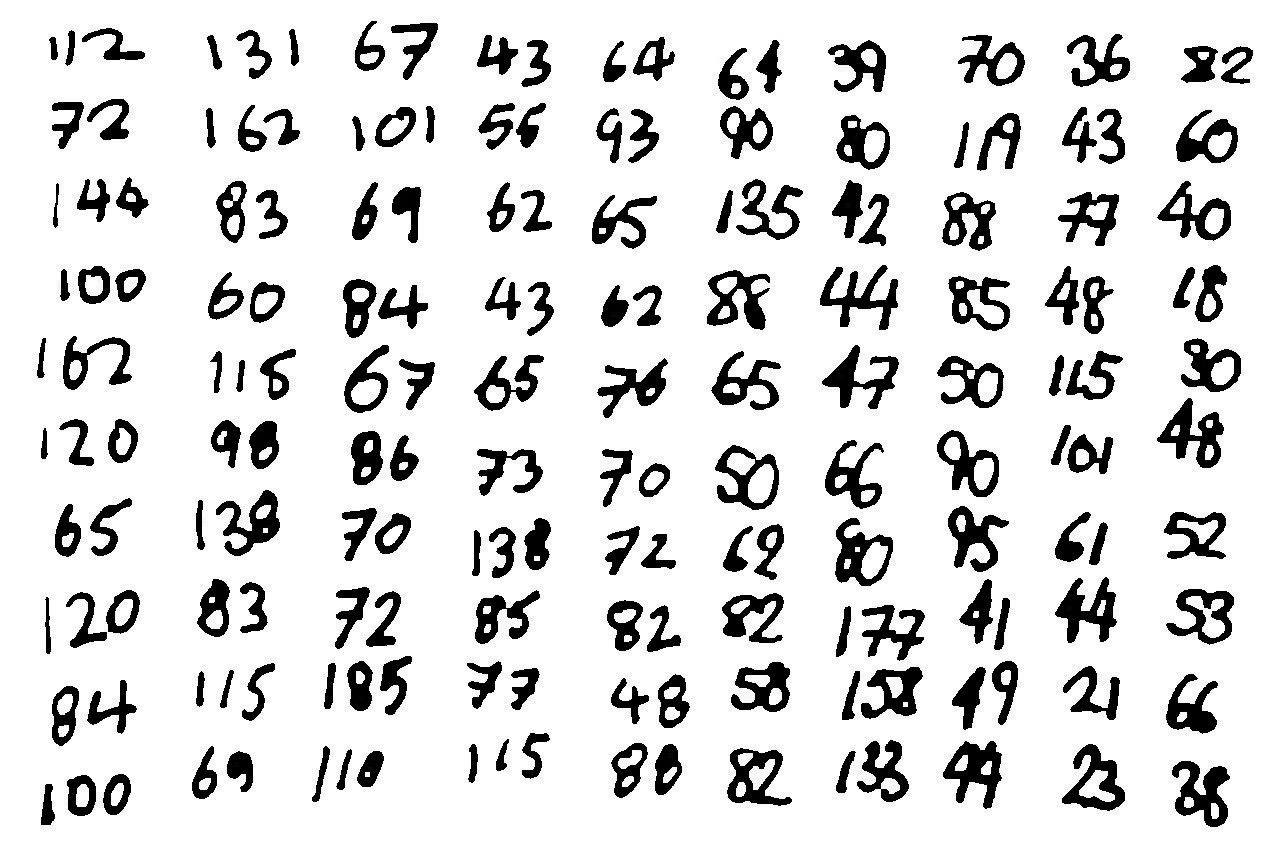 112 131 67 43 64 64 39 70 36 82
72 162 101 56 93 90 80 119 43 60
144 83 69 62 65 135 42 88 77 40
100 60 84 43 62 88 44 85 48 18
162 115 67 65 76 65 47 50 115 30
120 98 86 73 70 50 66 90 101 48
65 138 70 138 72 62 80 95 61 52
120 83 72 85 82 82 177 41 44 53
84 115 185 77 48 58 158 49 21 66
100 69 110 115 88 82 133 44 23 38